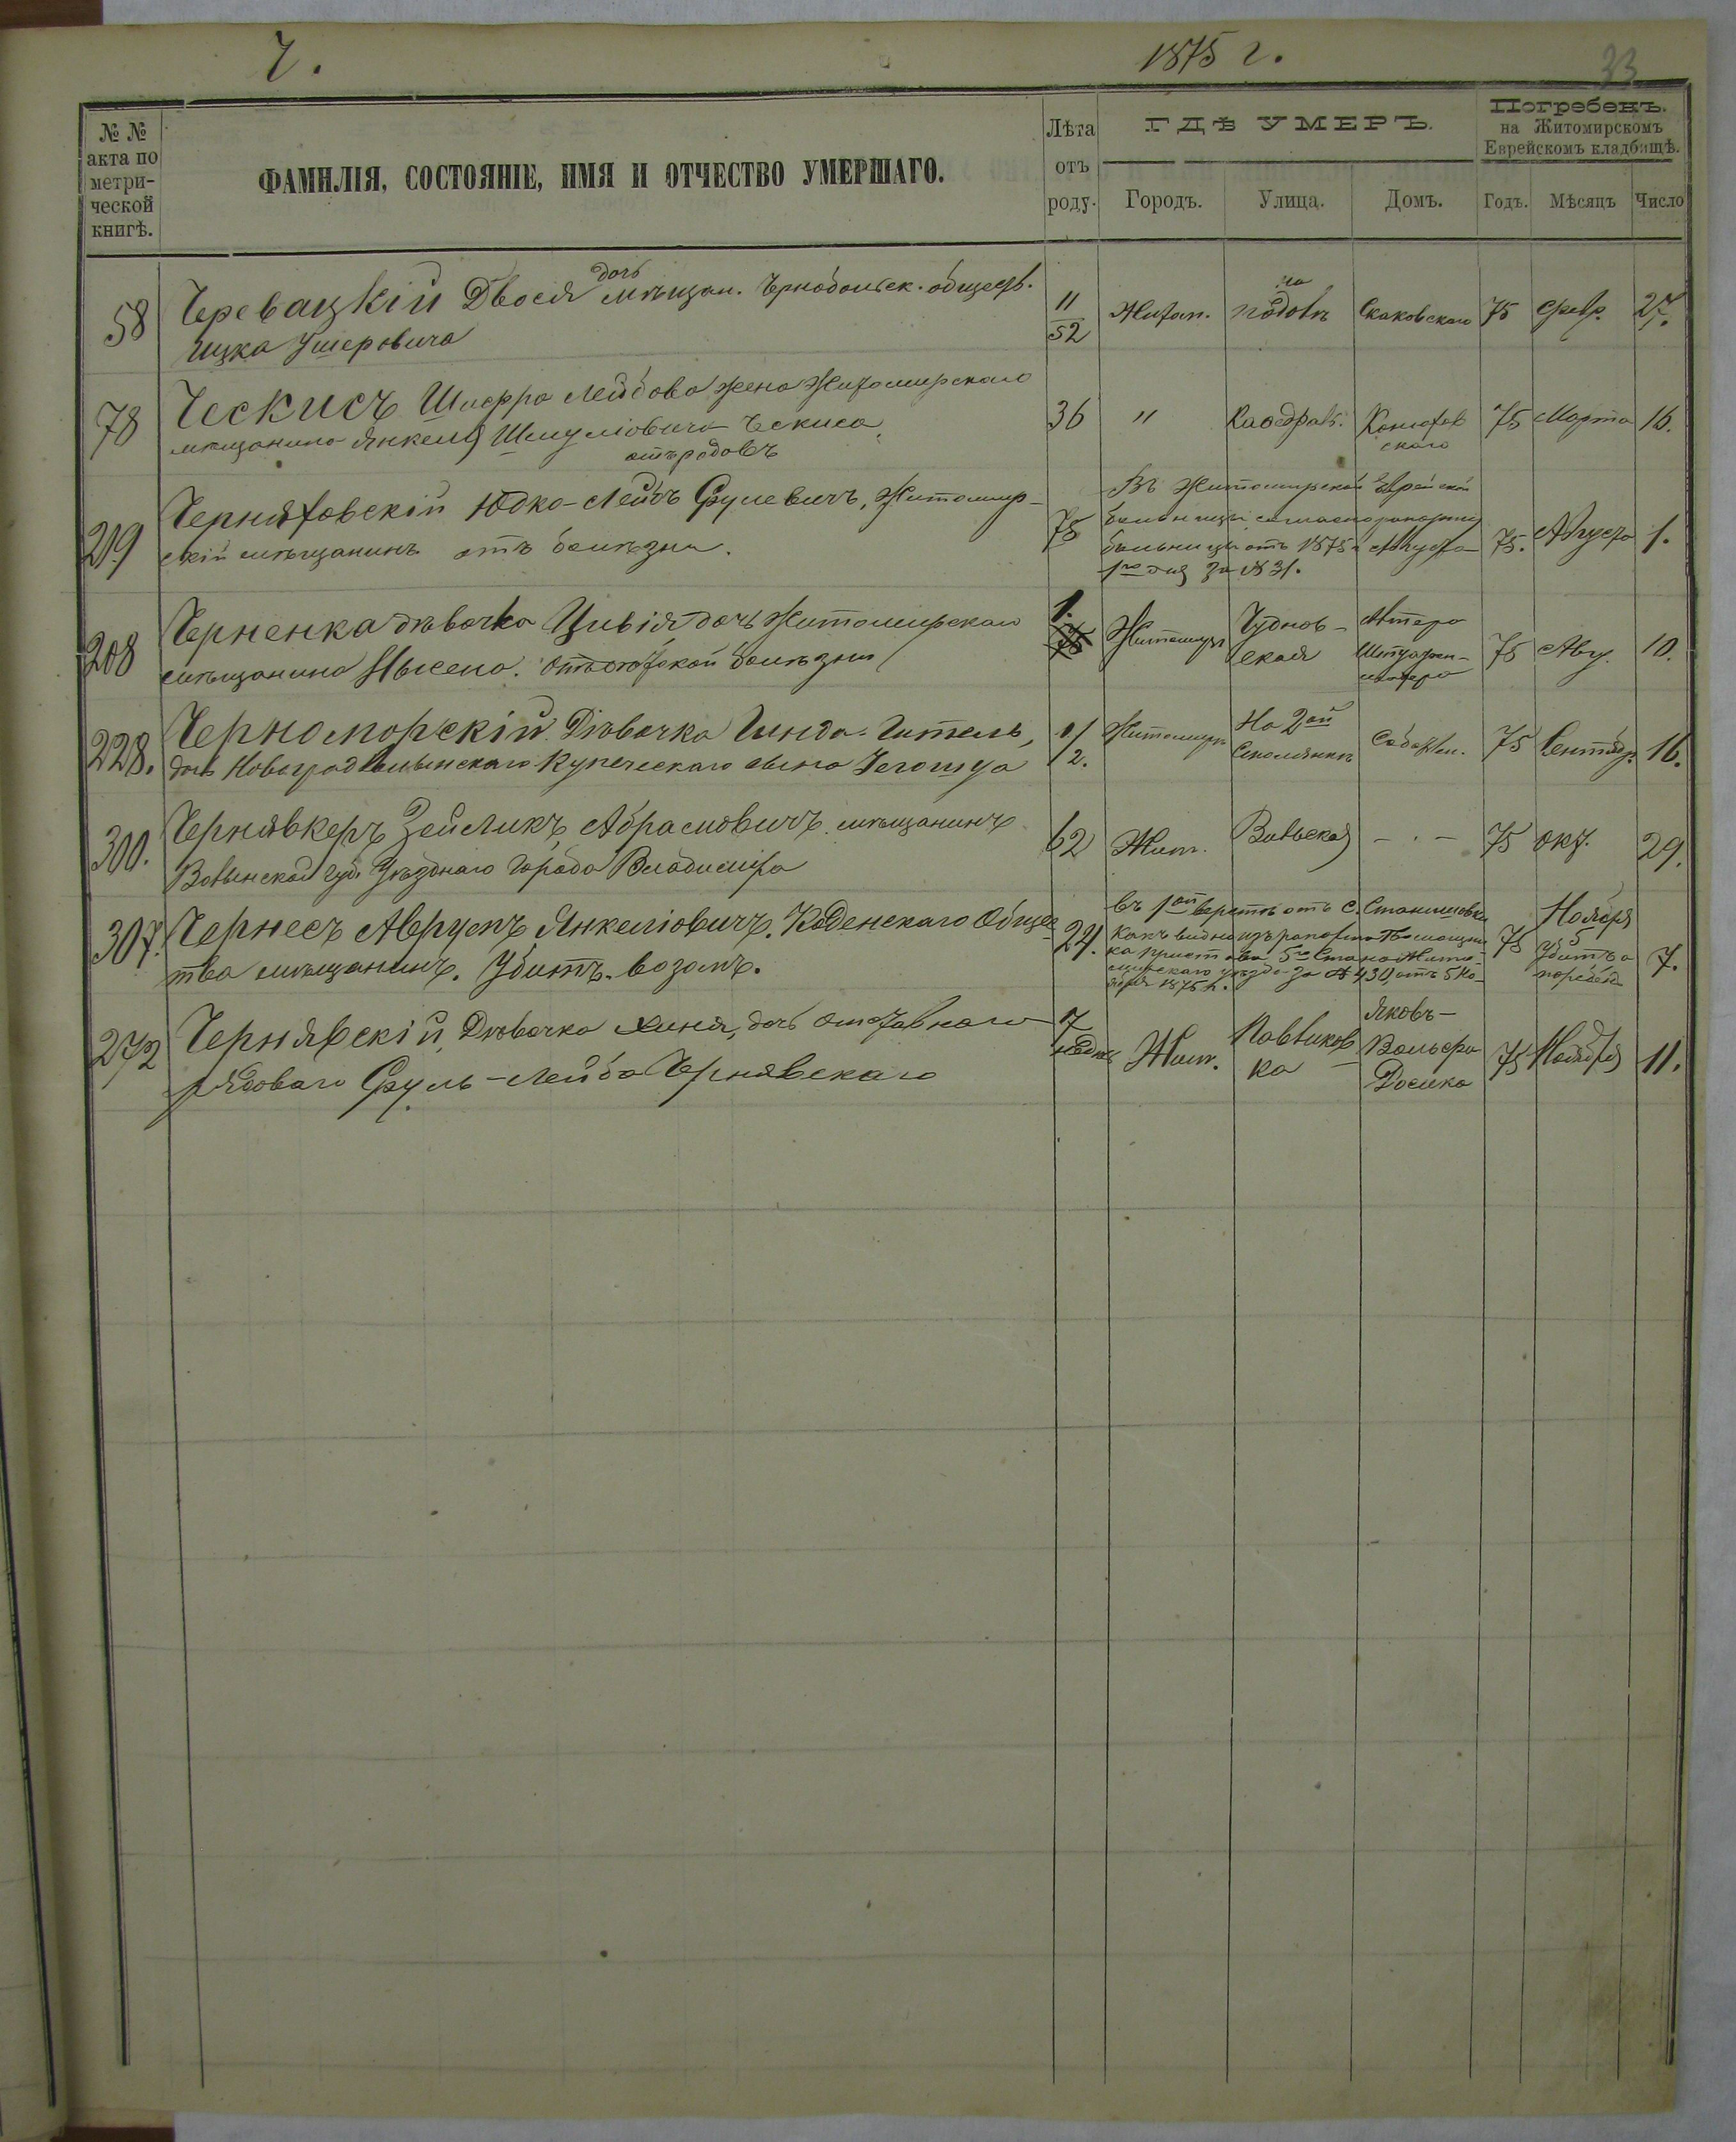 Ч.
1875 г.
33
№ №
акта по
метри-
ческой
книгѣ.
ФАМИЛІЯ, СОСТОЯНІЕ, ИМЯ И ОТЧЕСТВО УМЕРШАГО.
Лѣта
отъ
роду.
ГДѢ УМЕРЪ.
Городъ.
Улица.
Домъ.
Погребенъ.
на Житомирскомъ
Еврейскомъ кладбищѣ.
Годъ.
Мѣсяцъ
Число
58
Черевацкій Двося дочь мѣщан. Чернобольск. обществ.
Ицка Ушеровича
11/52
Житом.
на
подолѣ
Скаковскаго
75
Февр.
27.
78
Ческисъ Шифра Лейбова жена Житомирскаго
мѣщанина Янкеля Шмуліовича Ческиса
отъ родовъ
36
"
Каѳедрал.
75
Марта
16.
219
Черняховскій Юдко-Лейбъ Срулевичъ, Житомир-
скій мѣщанинъ отъ болѣзни.
75
Въ Житомирской Еврейской
больницы согласно рапорту
больницы отъ 1875 г. Августа
1го дня за № 31.
75.
Августа
1.
208
Черненка дѣвочка Цивія дочь Житомирскаго
мѣщанина Нысена. отъ дѣтской болѣзни
1.
Житомиръ
Чуднов-
ская
75
Авг.
10.
228.
Черноморскій Дѣвочка Гинда-Гитель,
дочь Новоградволынскаго Купеческаго сына Іегошуа
1/2.
Житомиръ
На 2ой
Смолянкѣ
75
Сентбр.
16.
300.
Чернявкеръ Зейликъ Абрамовичъ мѣщанинъ
Волынской губ. Уѣзднаго города Владиміра
62
Жит.
Вильская
- . -
75
окт.
29.
307.
Чернесъ Аврумъ Янкеліовичъ. Коденскаго Общес
тва мѣщанинъ. Убитъ возомъ.
24.
въ 1ой верстѣ отъ с. Станишовки
какъ видно изъ рапорта Помощни-
ка пристава 5го Стана Жито-
мирскаго уѣзда за № 430, отъ 5 Но-
ября 1875 г.
75
Ноября
5
Убитъ а
погребенъ
7.
272
Чернявскій, Дѣвочка Хиня, дочь отставнаго
рядоваго Сруль-Лейба Чернявскаго
7
недѣль
Жит.
Павликов
ка
Яковъ-
Вольфа
75
Ноября
11.